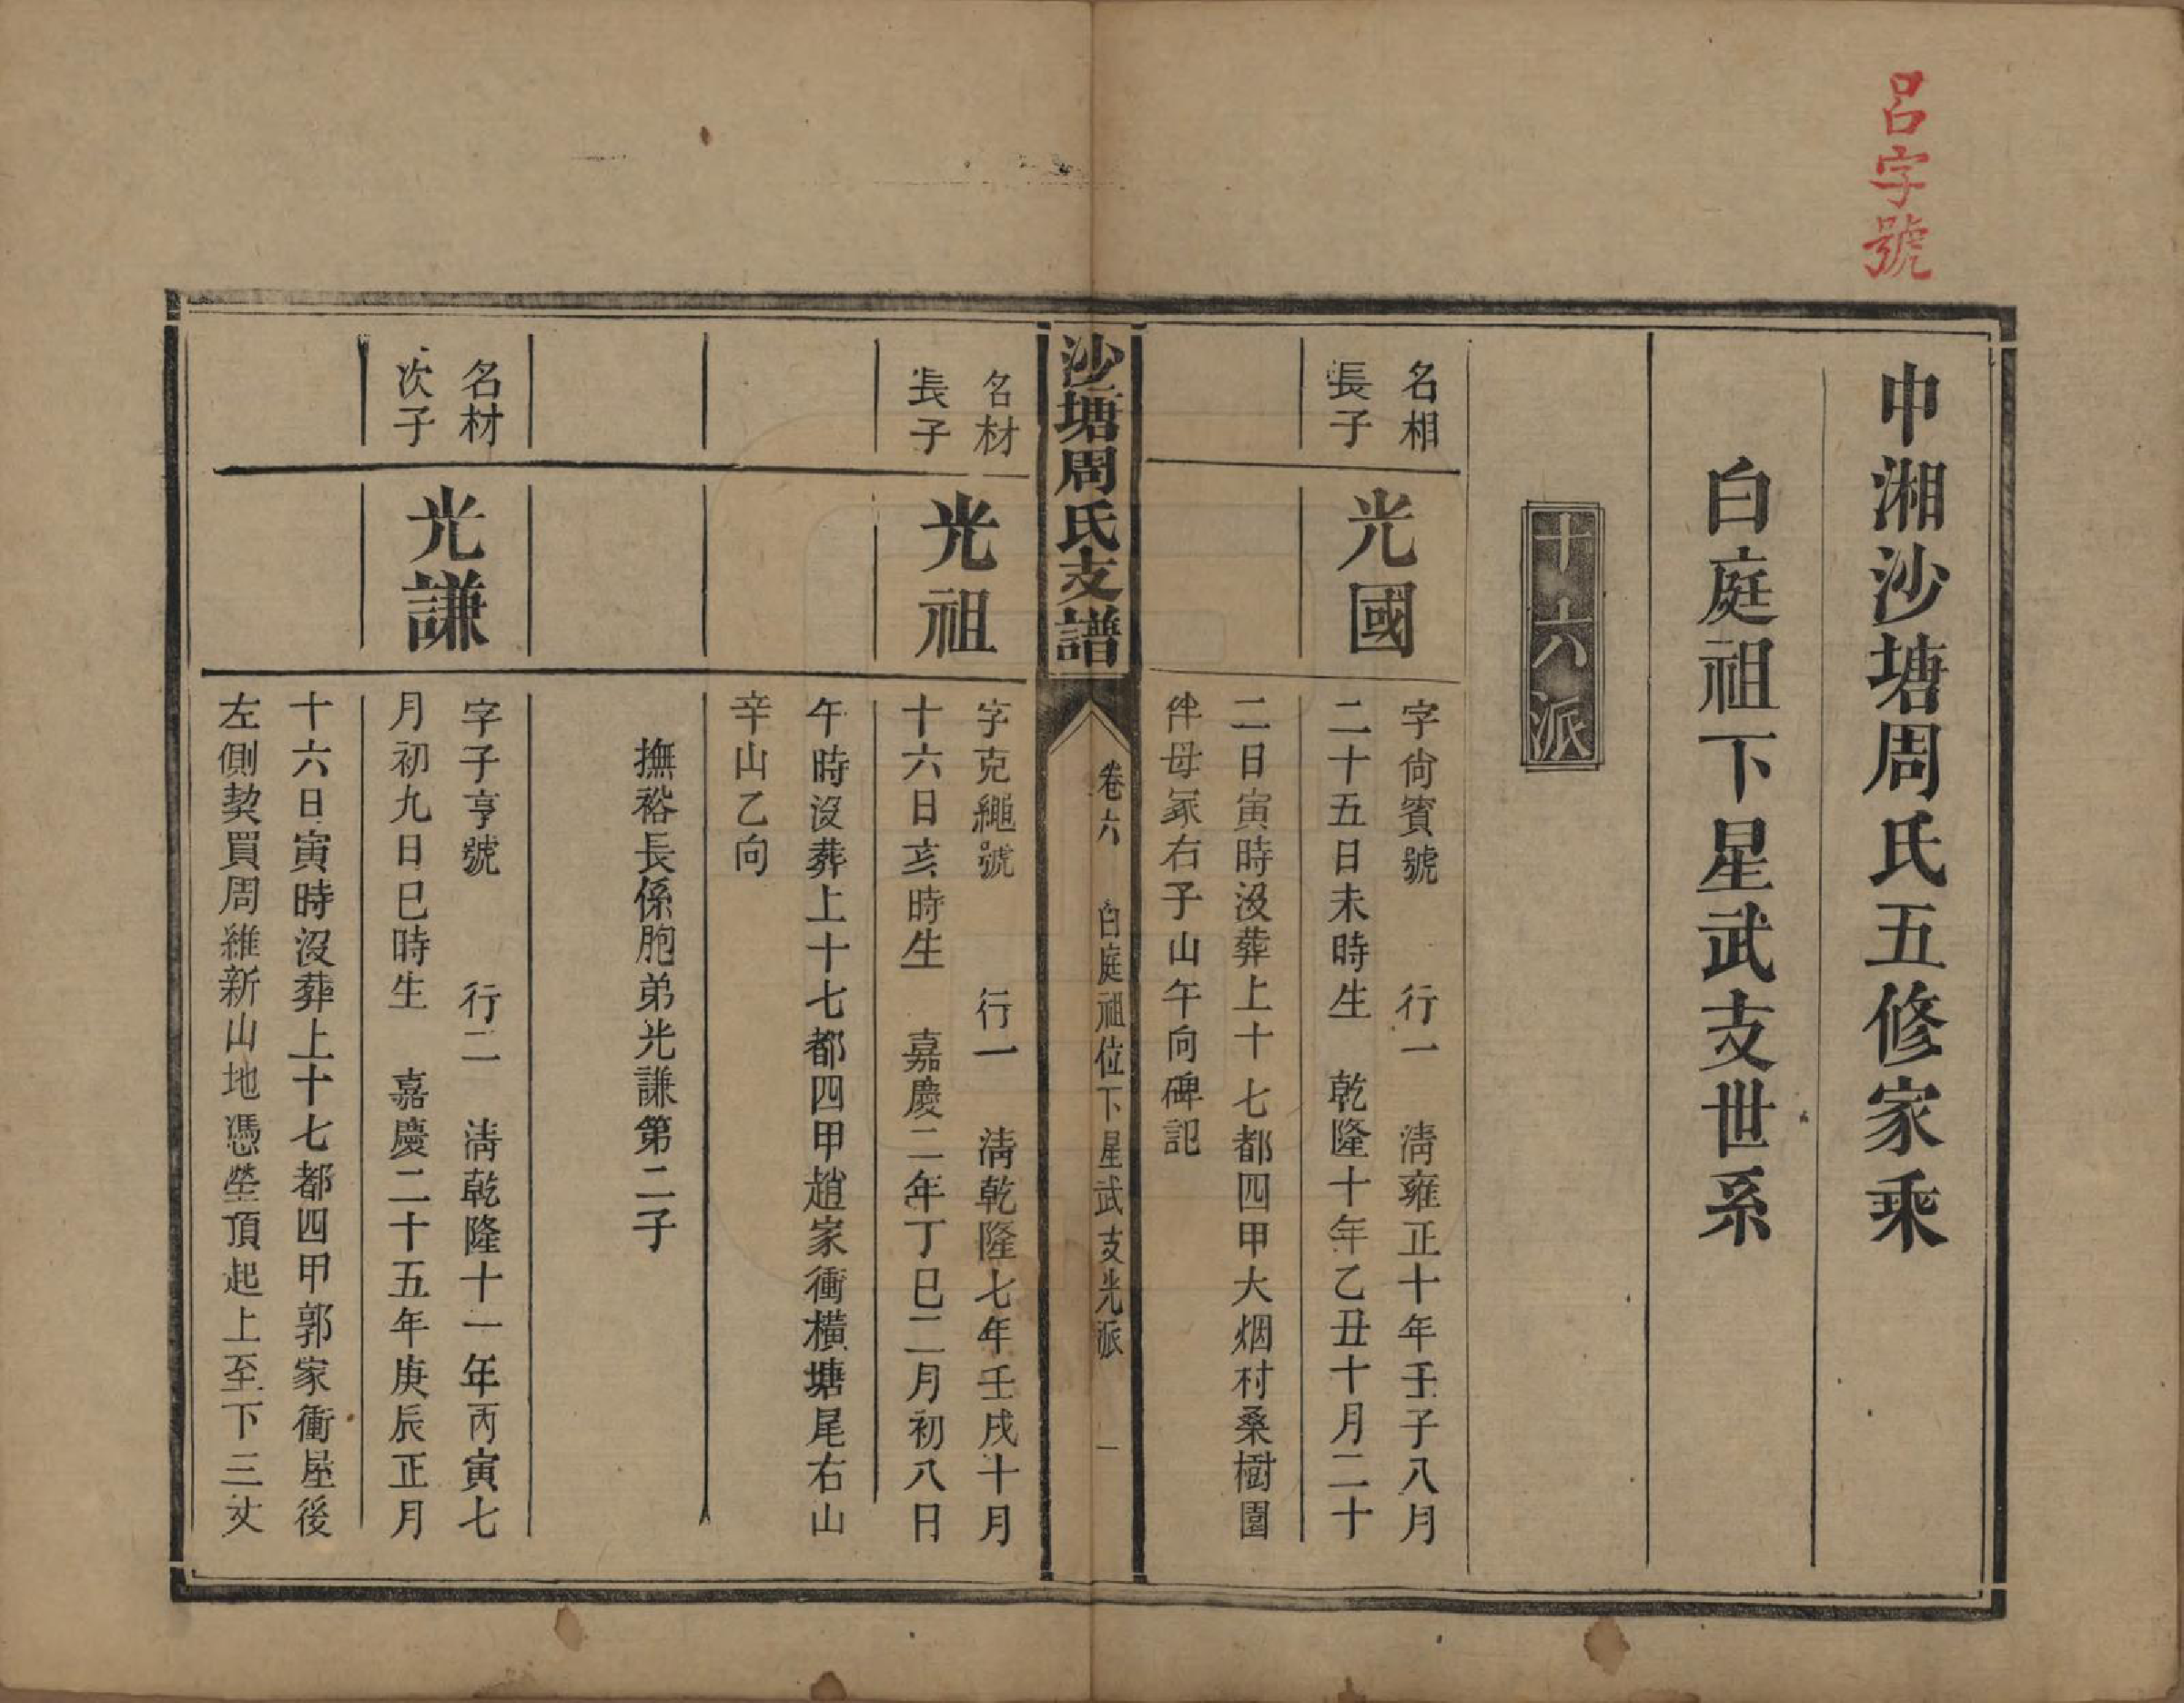 呂字號
中湘沙塘周氏五修家乘
白庭祖下星武支世系
十六派
名相
長子
光國
字尙賓號 行一 淸雍正十年壬子八月
二十五日未時生 乾隆十年乙丑十月二十
二日寅時沒葬上十七都四甲大烟村桑樹園
伴母冢右子山午向碑記
沙塘周氏支譜
卷六 白庭祖位下星武支光派 一
名材
長子
光祖
字克繩號 行一 淸乾隆七年壬戌十月
十六日亥時生 嘉慶二年丁巳二月初八日
午時沒葬上十七都四甲趙家衝橫塘尾右山
辛山乙向
撫裕長係胞弟光謙第二子
名材
次子
光謙
字子亨號 行二 淸乾隆十一年丙寅七
月初九日巳時生 嘉慶二十五年庚辰正月
十六日寅時沒葬上十七都四甲郭家衝屋後
左側契買周維新山地憑塋頂起上至下三丈